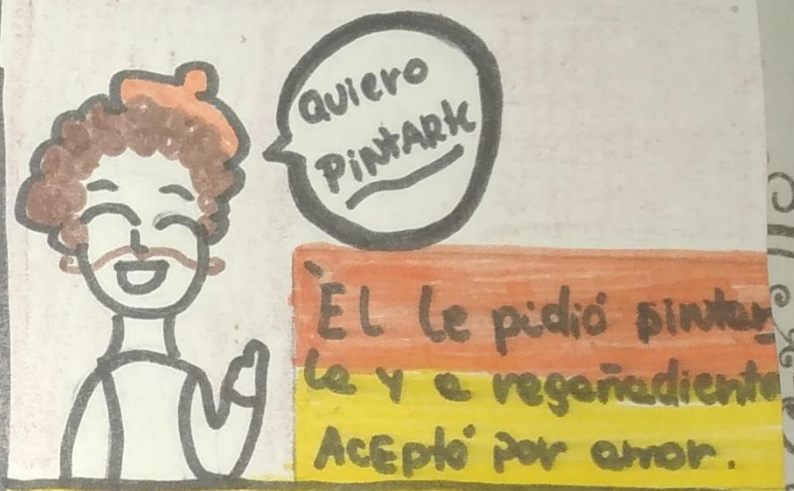 Quiero
PiNtARte
Él le pidió pintar
la y a regañadiente
AcEptó por amor.